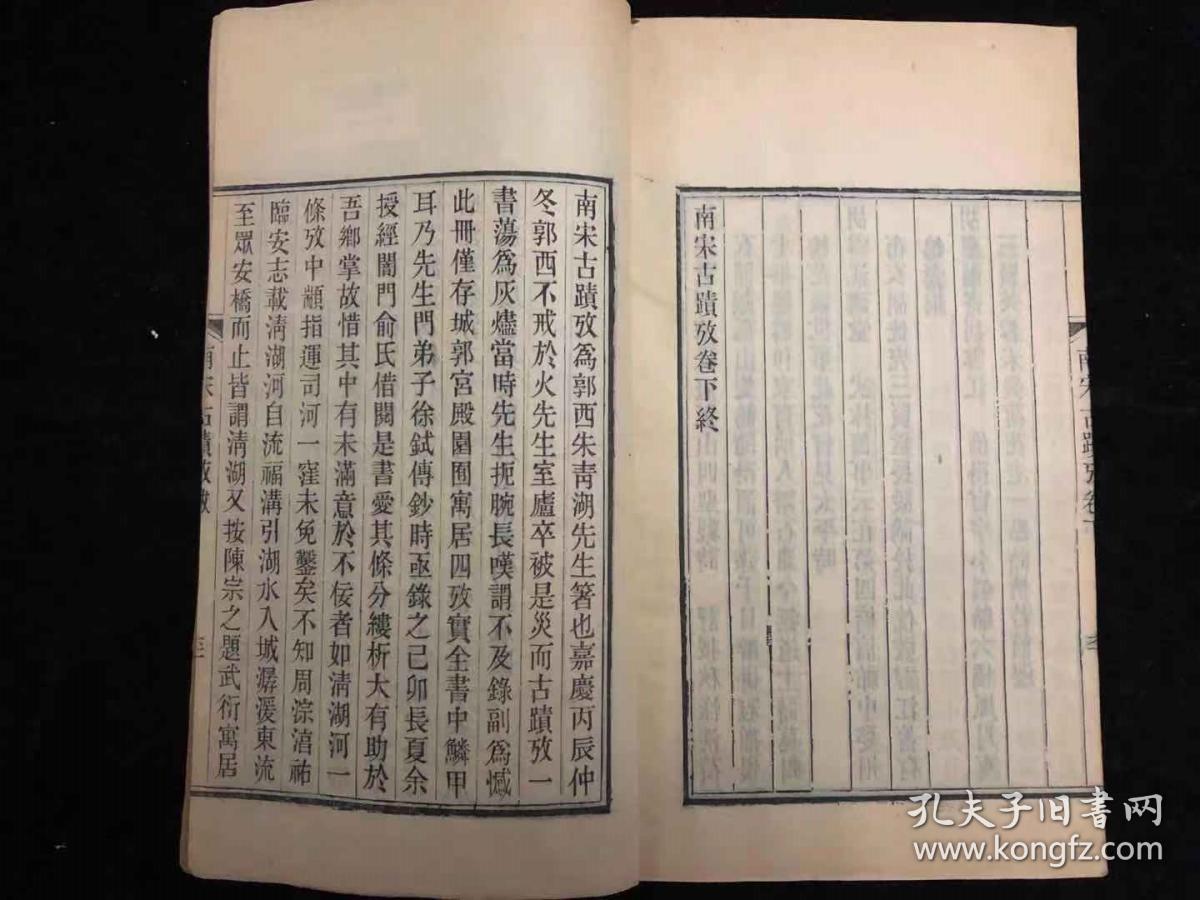 南宋古蹟攷卷下終
南宋古蹟攷卷下
南宋古蹟攷爲郭西朱靑湖先生箸也嘉慶丙辰仲
冬郭西不戒於火先生室廬卒被是災而古蹟攷一
書蕩爲灰燼當時先生扼腕長嘆謂不及錄副爲憾
此冊僅存城郭宮殿園囿寓居四攷實全書中鱗甲
耳乃先生門弟子徐鉽傳鈔時亟錄之己卯長夏余
授經閶門俞氏借閱是書愛其條分縷析大有助於
吾鄉掌故惜其中有未滿意於不佞者如清湖河一
條攷中顓指運司河一窪未免鑿矣不知周淙湻祐
臨安志載淸湖河自流福溝引湖水入城潺湲東流
至眾安橋而止皆謂淸湖又按陳宗之題武衍寓居
南宋古蹟攷
孔夫子旧书网
www.kongfz.com